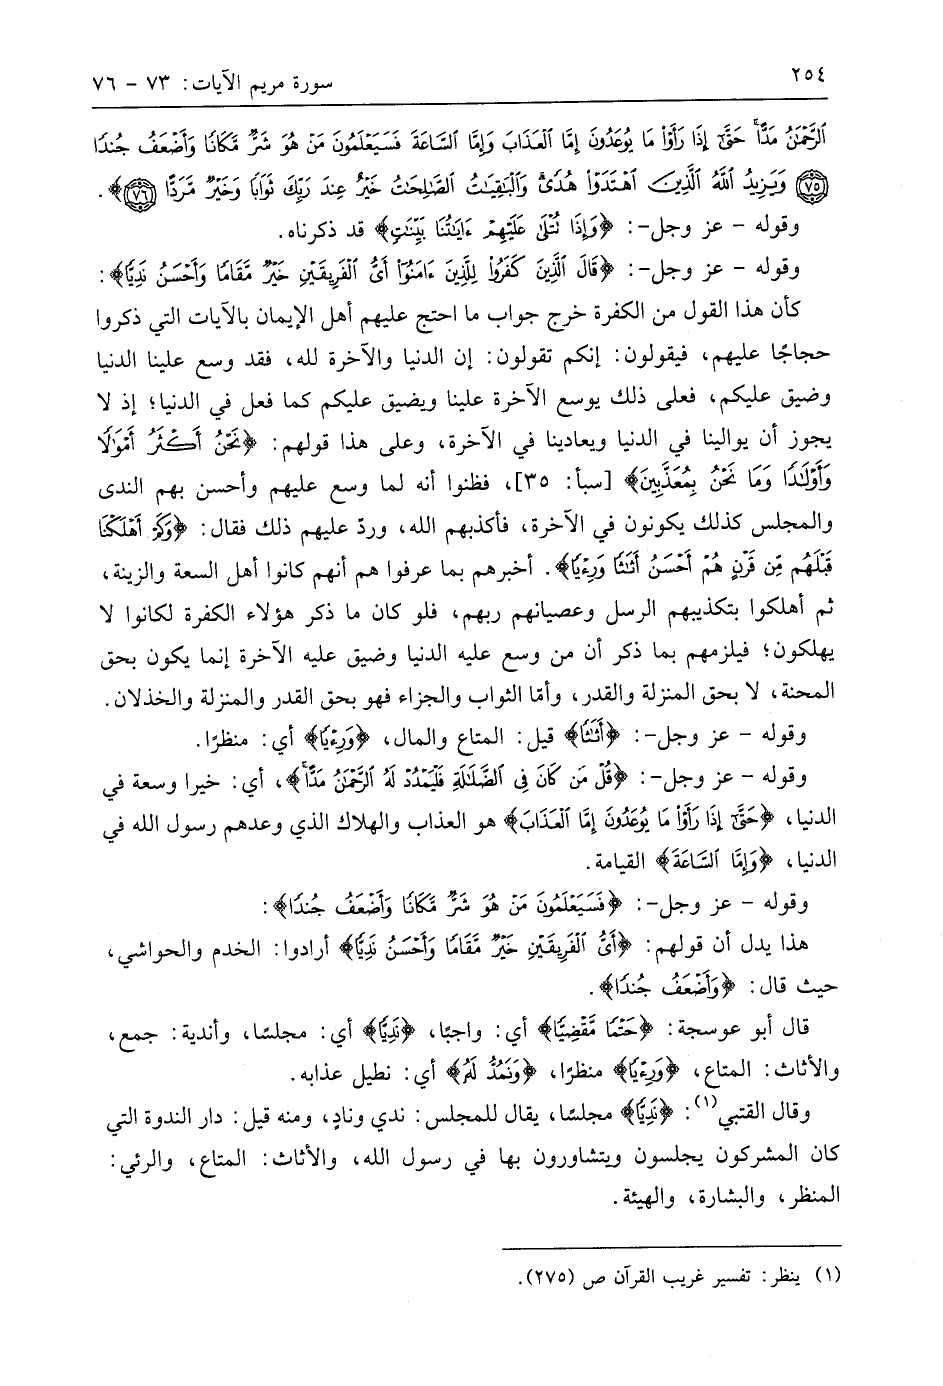 ٢٥٤
سورة مريم الآيات: ٧٣ - ٧٦
ٱلرَّحْمَٰنُ مَدًّا حَتَّىٰٓ إِذَا رَأَوْا۟ مَا يُوعَدُونَ إِمَّا ٱلْعَذَابَ وَإِمَّا ٱلسَّاعَةَ فَسَيَعْلَمُونَ مَنْ هُوَ شَرٌّ مَّكَانًا وَأَضْعَفُ جُندًا
﴿٧٥﴾ وَيَزِيدُ ٱللَّهُ ٱلَّذِينَ ٱهْتَدَوْا۟ هُدًى وَٱلْبَٰقِيَٰتُ ٱلصَّٰلِحَٰتُ خَيْرٌ عِندَ رَبِّكَ ثَوَابًا وَخَيْرٌ مَّرَدًّا ﴿٧٦﴾﴾.
وقوله - عز وجل-: ﴿وَإِذَا تُتْلَىٰ عَلَيْهِمْ ءَايَٰتُنَا بَيِّنَٰتٍ﴾ قد ذكرناه.
وقوله - عز وجل-: ﴿قَالَ ٱلَّذِينَ كَفَرُوا۟ لِلَّذِينَ ءَامَنُوٓا۟ أَىُّ ٱلْفَرِيقَيْنِ خَيْرٌ مَّقَامًا وَأَحْسَنُ نَدِيًّا﴾:
كأن هذا القول من الكفرة خرج جواب ما احتج عليهم أهل الإيمان بالآيات التي ذكروا
حجاجًا عليهم، فيقولون: إنكم تقولون: إن الدنيا والآخرة لله، فقد وسع علينا الدنيا
وضيق عليكم، فعلى ذلك يوسع الآخرة علينا ويضيق عليكم كما فعل في الدنيا؛ إذ لا
يجوز أن يوالينا في الدنيا ويعادينا في الآخرة، وعلى هذا قولهم: ﴿نَحْنُ أَكْثَرُ أَمْوَٰلًا
وَأَوْلَٰدًا وَمَا نَحْنُ بِمُعَذَّبِينَ﴾ [سبأ: ٣٥]، فظنوا أنه لما وسع عليهم وأحسن بهم الندى
والمجلس كذلك يكونون في الآخرة، فأكذبهم الله، وردّ عليهم ذلك فقال: ﴿وَكَمْ أَهْلَكْنَا
قَبْلَهُم مِّن قَرْنٍ هُمْ أَحْسَنُ أَثَٰثًا وَرِءْيًا﴾. أخبرهم بما عرفوا هم أنهم كانوا أهل السعة والزينة،
ثم أهلكوا بتكذيبهم الرسل وعصيانهم ربهم، فلو كان ما ذكر هؤلاء الكفرة لكانوا لا
يهلكون؛ فيلزمهم بما ذكر أن من وسع عليه الدنيا وضيق عليه الآخرة إنما يكون بحق
المحنة، لا بحق المنزلة والقدر، وأمّا الثواب والجزاء فهو بحق القدر والمنزلة والخذلان.
وقوله - عز وجل-: ﴿أَثَٰثًا﴾ قيل: المتاع والمال، ﴿وَرِءْيًا﴾ أي: منظرًا.
وقوله - عز وجل-: ﴿قُلْ مَن كَانَ فِى ٱلضَّلَٰلَةِ فَلْيَمْدُدْ لَهُ ٱلرَّحْمَٰنُ مَدًّا﴾، أي: خيرا وسعة في
الدنيا، ﴿حَتَّىٰٓ إِذَا رَأَوْا۟ مَا يُوعَدُونَ إِمَّا ٱلْعَذَابَ﴾ هو العذاب والهلاك الذي وعدهم رسول الله في
الدنيا، ﴿وَإِمَّا ٱلسَّاعَةَ﴾ القيامة.
وقوله - عز وجل-: ﴿فَسَيَعْلَمُونَ مَنْ هُوَ شَرٌّ مَّكَانًا وَأَضْعَفُ جُندًا﴾:
هذا يدل أن قولهم: ﴿أَىُّ ٱلْفَرِيقَيْنِ خَيْرٌ مَّقَامًا وَأَحْسَنُ نَدِيًّا﴾ أرادوا: الخدم والحواشي،
حيث قال: ﴿وَأَضْعَفُ جُندًا﴾.
قال أبو عوسجة: ﴿حَتْمًا مَّقْضِيًّا﴾ أي: واجبًا، ﴿نَدِيًّا﴾ أي: مجلسًا، وأندية: جمع،
والأثاث: المتاع، ﴿وَرِءْيًا﴾ منظرًا، ﴿وَنَمُدُّ لَهُۥ﴾ أي: نطيل عذابه.
وقال القتبي(١): ﴿نَدِيًّا﴾ مجلسًا، يقال للمجلس: ندي ونادٍ، ومنه قيل: دار الندوة التي
كان المشركون يجلسون ويتشاورون بها في رسول الله، والأثاث: المتاع، والرئي:
المنظر، والبشارة، والهيئة.
(١) ينظر: تفسير غريب القرآن ص (٢٧٥).